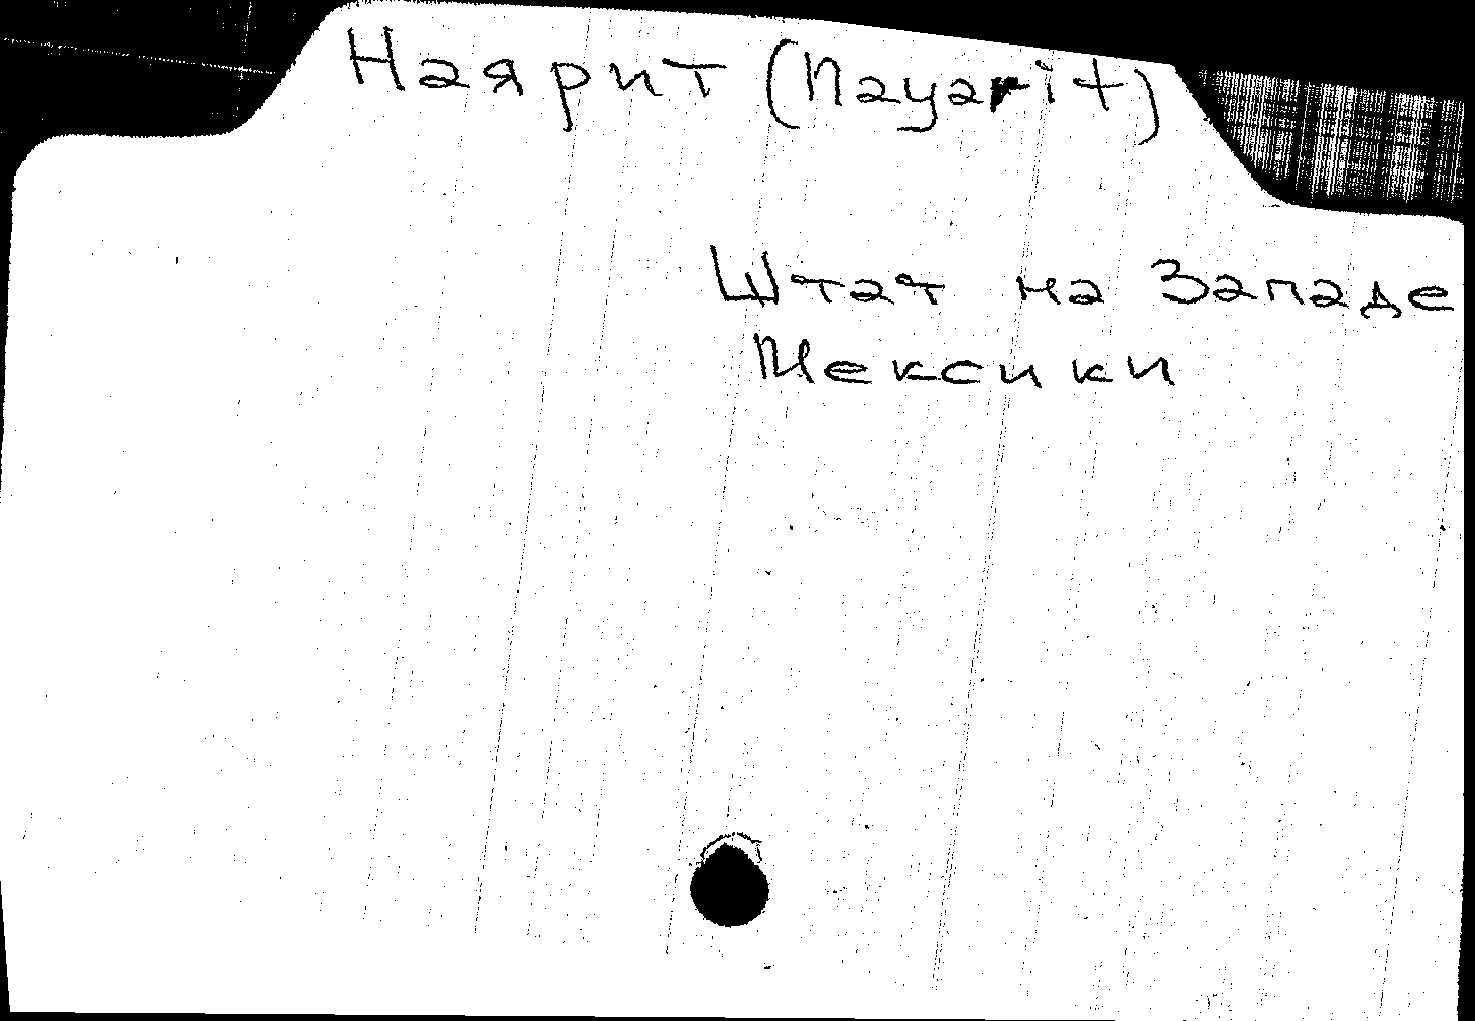 Наярит (Nayarit)
Штат на Западе
Мексики